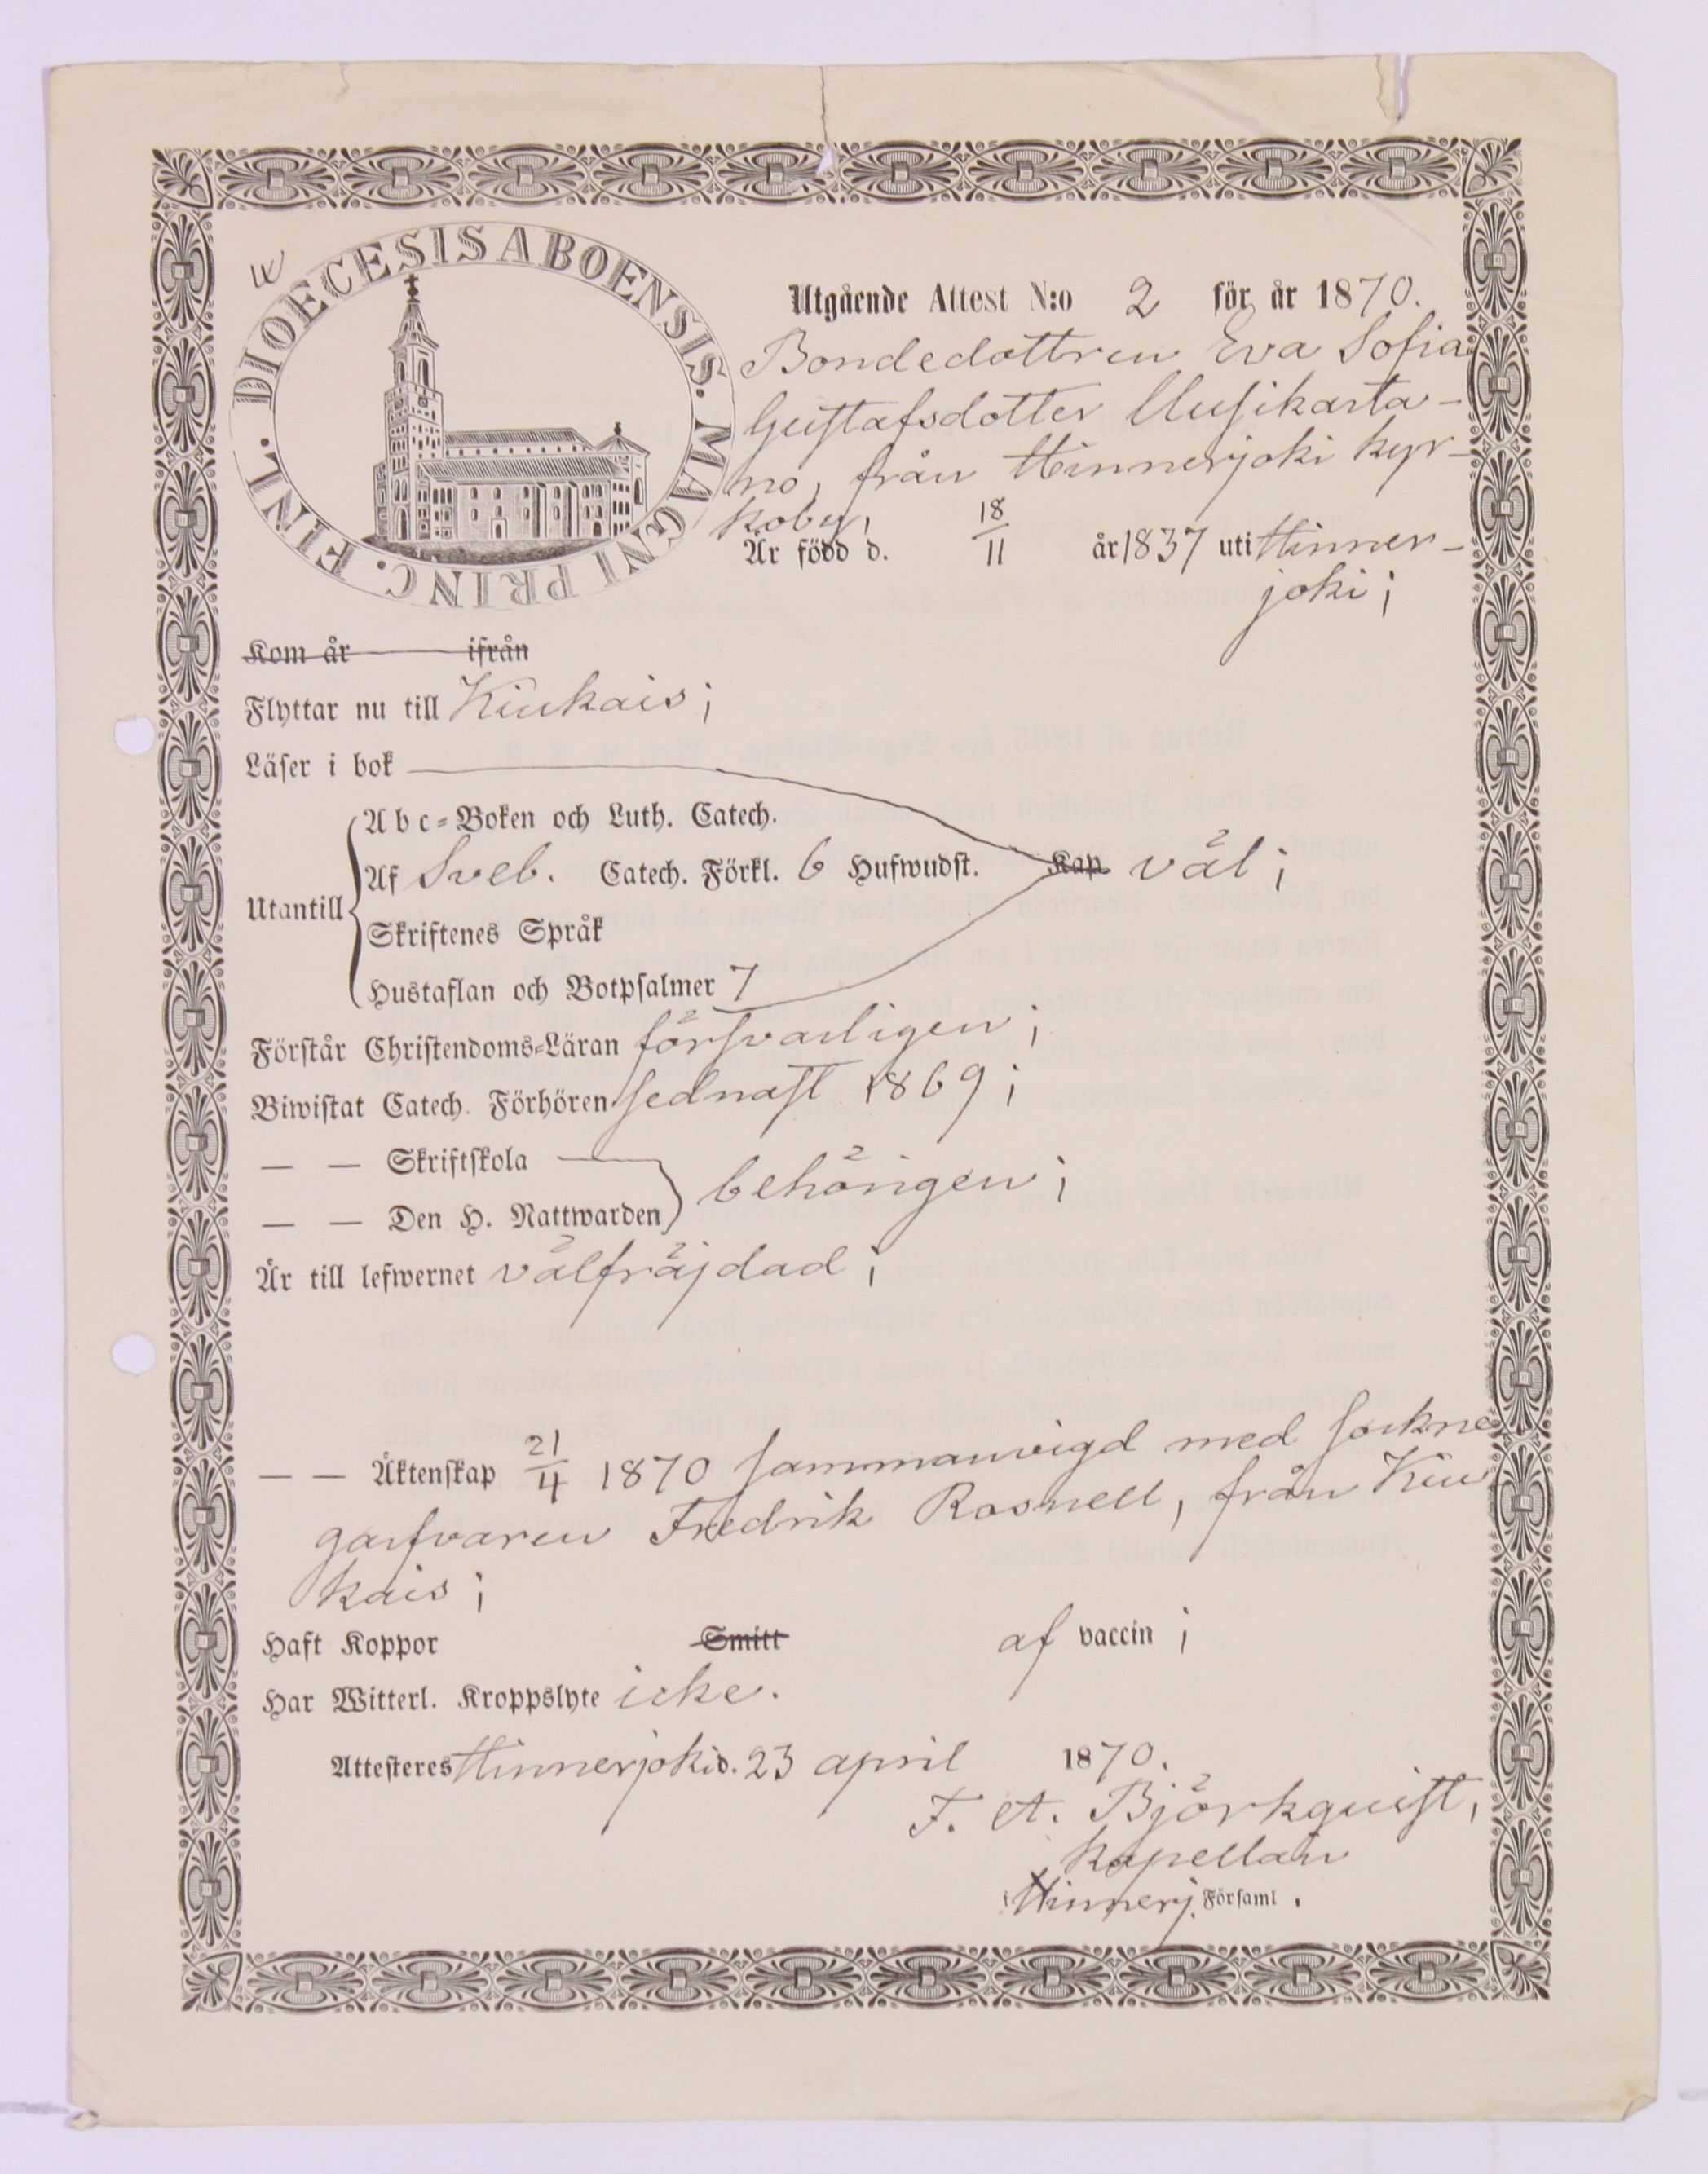 DIOECESIS ABOENSIS. MAGNI PRINC. FINL.
Utgående Attest N:o 2 för år 1870.
Bondedottren Eva Sofia
Gustafsdotter Uusikarta-
no, från Hinnerjoki kyr-
koby,
Är född d. 18/11 år 1837 uti Hinner-
joki;
Kom år ifrån
Flyttar nu till Kiukais;
Läser i bok
Utantill
Abc-Boken och Luth. Catech.
Af Sveb. Catech. Förkl. 6 Hufwudst. Kap. väl;
Skriftenes Språk
Hustaflan och Botpsalmer 7
Förstår Christendoms-Läran försvarligen;
Biwistat Catech. Förhören sednast 1869;
— — Skriftskola
— — Den H. Nattwarden behörigen;
Är till lefwernet välfräjdad;
— — Äktenskap 21/4 1870 sammanvigd med sockne
garfvaren Fredrik Rosnell, från Kiu
kais;
Haft Koppor Smitt af vaccin;
Har Witterl. Kroppslyte icke.
Attesteres Hinnerjoki d. 23 april 1870.
F. A. Björkquist,
Kapellan
i Hinnerj. Församl.